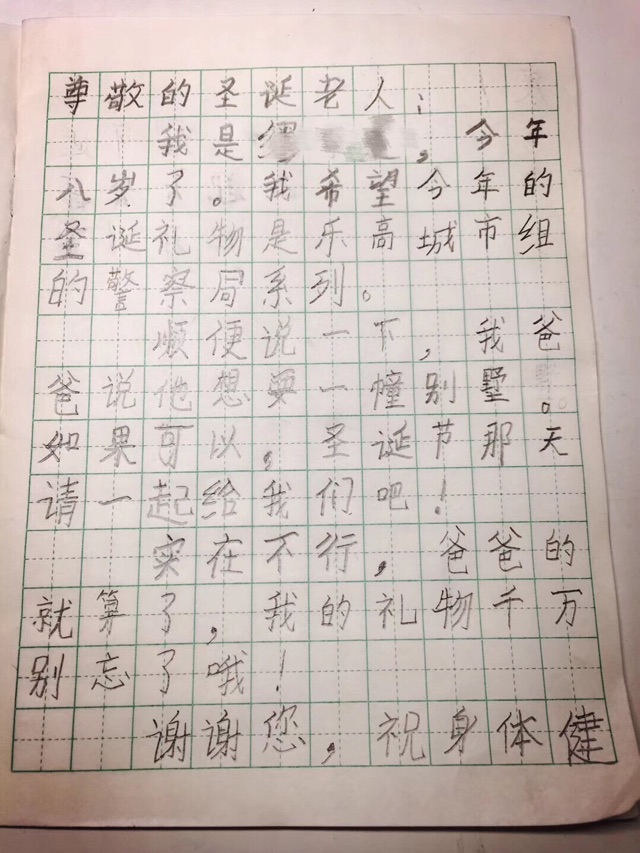 尊敬的圣诞老人：
我是，今年
八岁了。我希望今年的
圣诞礼物是乐高城市组
的警察局系列。
顺便说一下，我爸
爸说他想要一幢别墅。
如果可以，圣诞节那天
请一起给我们吧！
实在不行，爸爸的
就算了，我的礼物千万
别忘了哦！
谢谢您，祝身体健